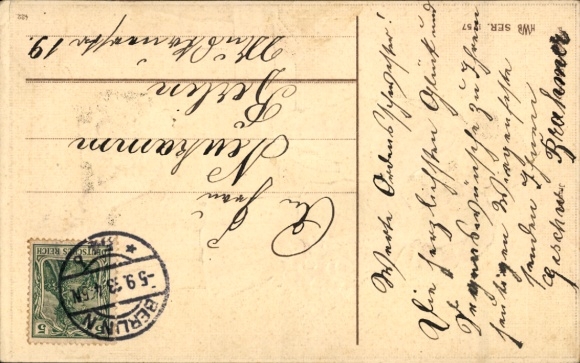 Werte Ordensschwester!
Die herzlichsten Glück und
Segenswünsche zu Ihrem
heutigen Wiegenfeste
senden Ihnen
Geschw. Brahmer
An Frau
Neukamm
Berlin
19.
HWB SER. 1157
DEUTSCHES REICH
5
BERLIN
-5.9.13.4-5N